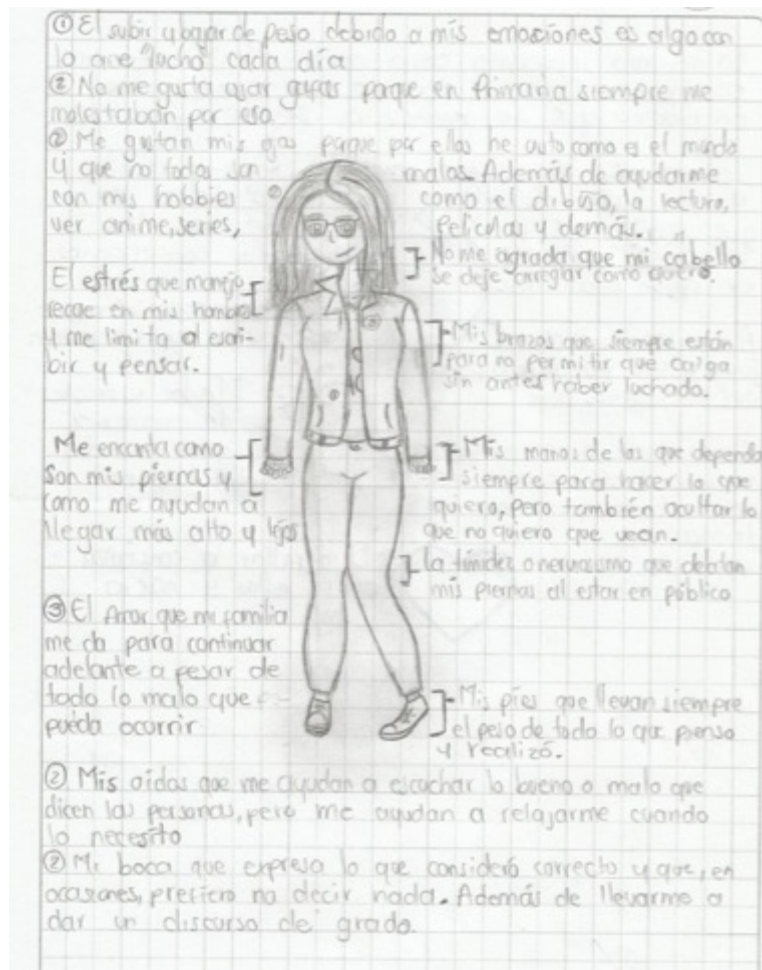 ① El subir y bajar de peso debido a mis emociones es algo con
lo que "lucho" cada día
② No me gusta usar gafas porque en Primaria siempre me
molestaban por eso
② Me gustan mis ojos porque por ellos he visto como es el mundo
y que no todos son malos. Además de ayudarme
con mis hobbies como el dibujo, la lectura,
ver anime, series, películas y demás.
No me agrada que mi cabello
se deje arreglar como quiero.
El estrés que manejo
recae en mis hombros
y me limita al escri-
bir y pensar.
Mis brazos que siempre están
para no permitir que caiga
sin antes haber luchado.
Me encanta como
son mis piernas y
como me ayudan a
llegar más alto y lejos
Mis manos de las que dependo
siempre para hacer lo que
quiero, pero también ocultar lo
que no quiero que vean.
la timidez o nerviosismo que delatan
mis piernas al estar en público
③ El Amor que mi familia
me da para continuar
adelante a pesar de
todo lo malo que
pueda ocurrir
Mis pies que llevan siempre
el peso de todo lo que pienso
y realizó.
② Mis oídos que me ayudan a escuchar lo bueno o malo que
dicen las personas, pero me ayudan a relajarme cuando
lo necesito
② Mi boca que expresa lo que consideró correcto y que, en
ocasiones, prefiero no decir nada. Además de llevarme a
dar un discurso de grado.